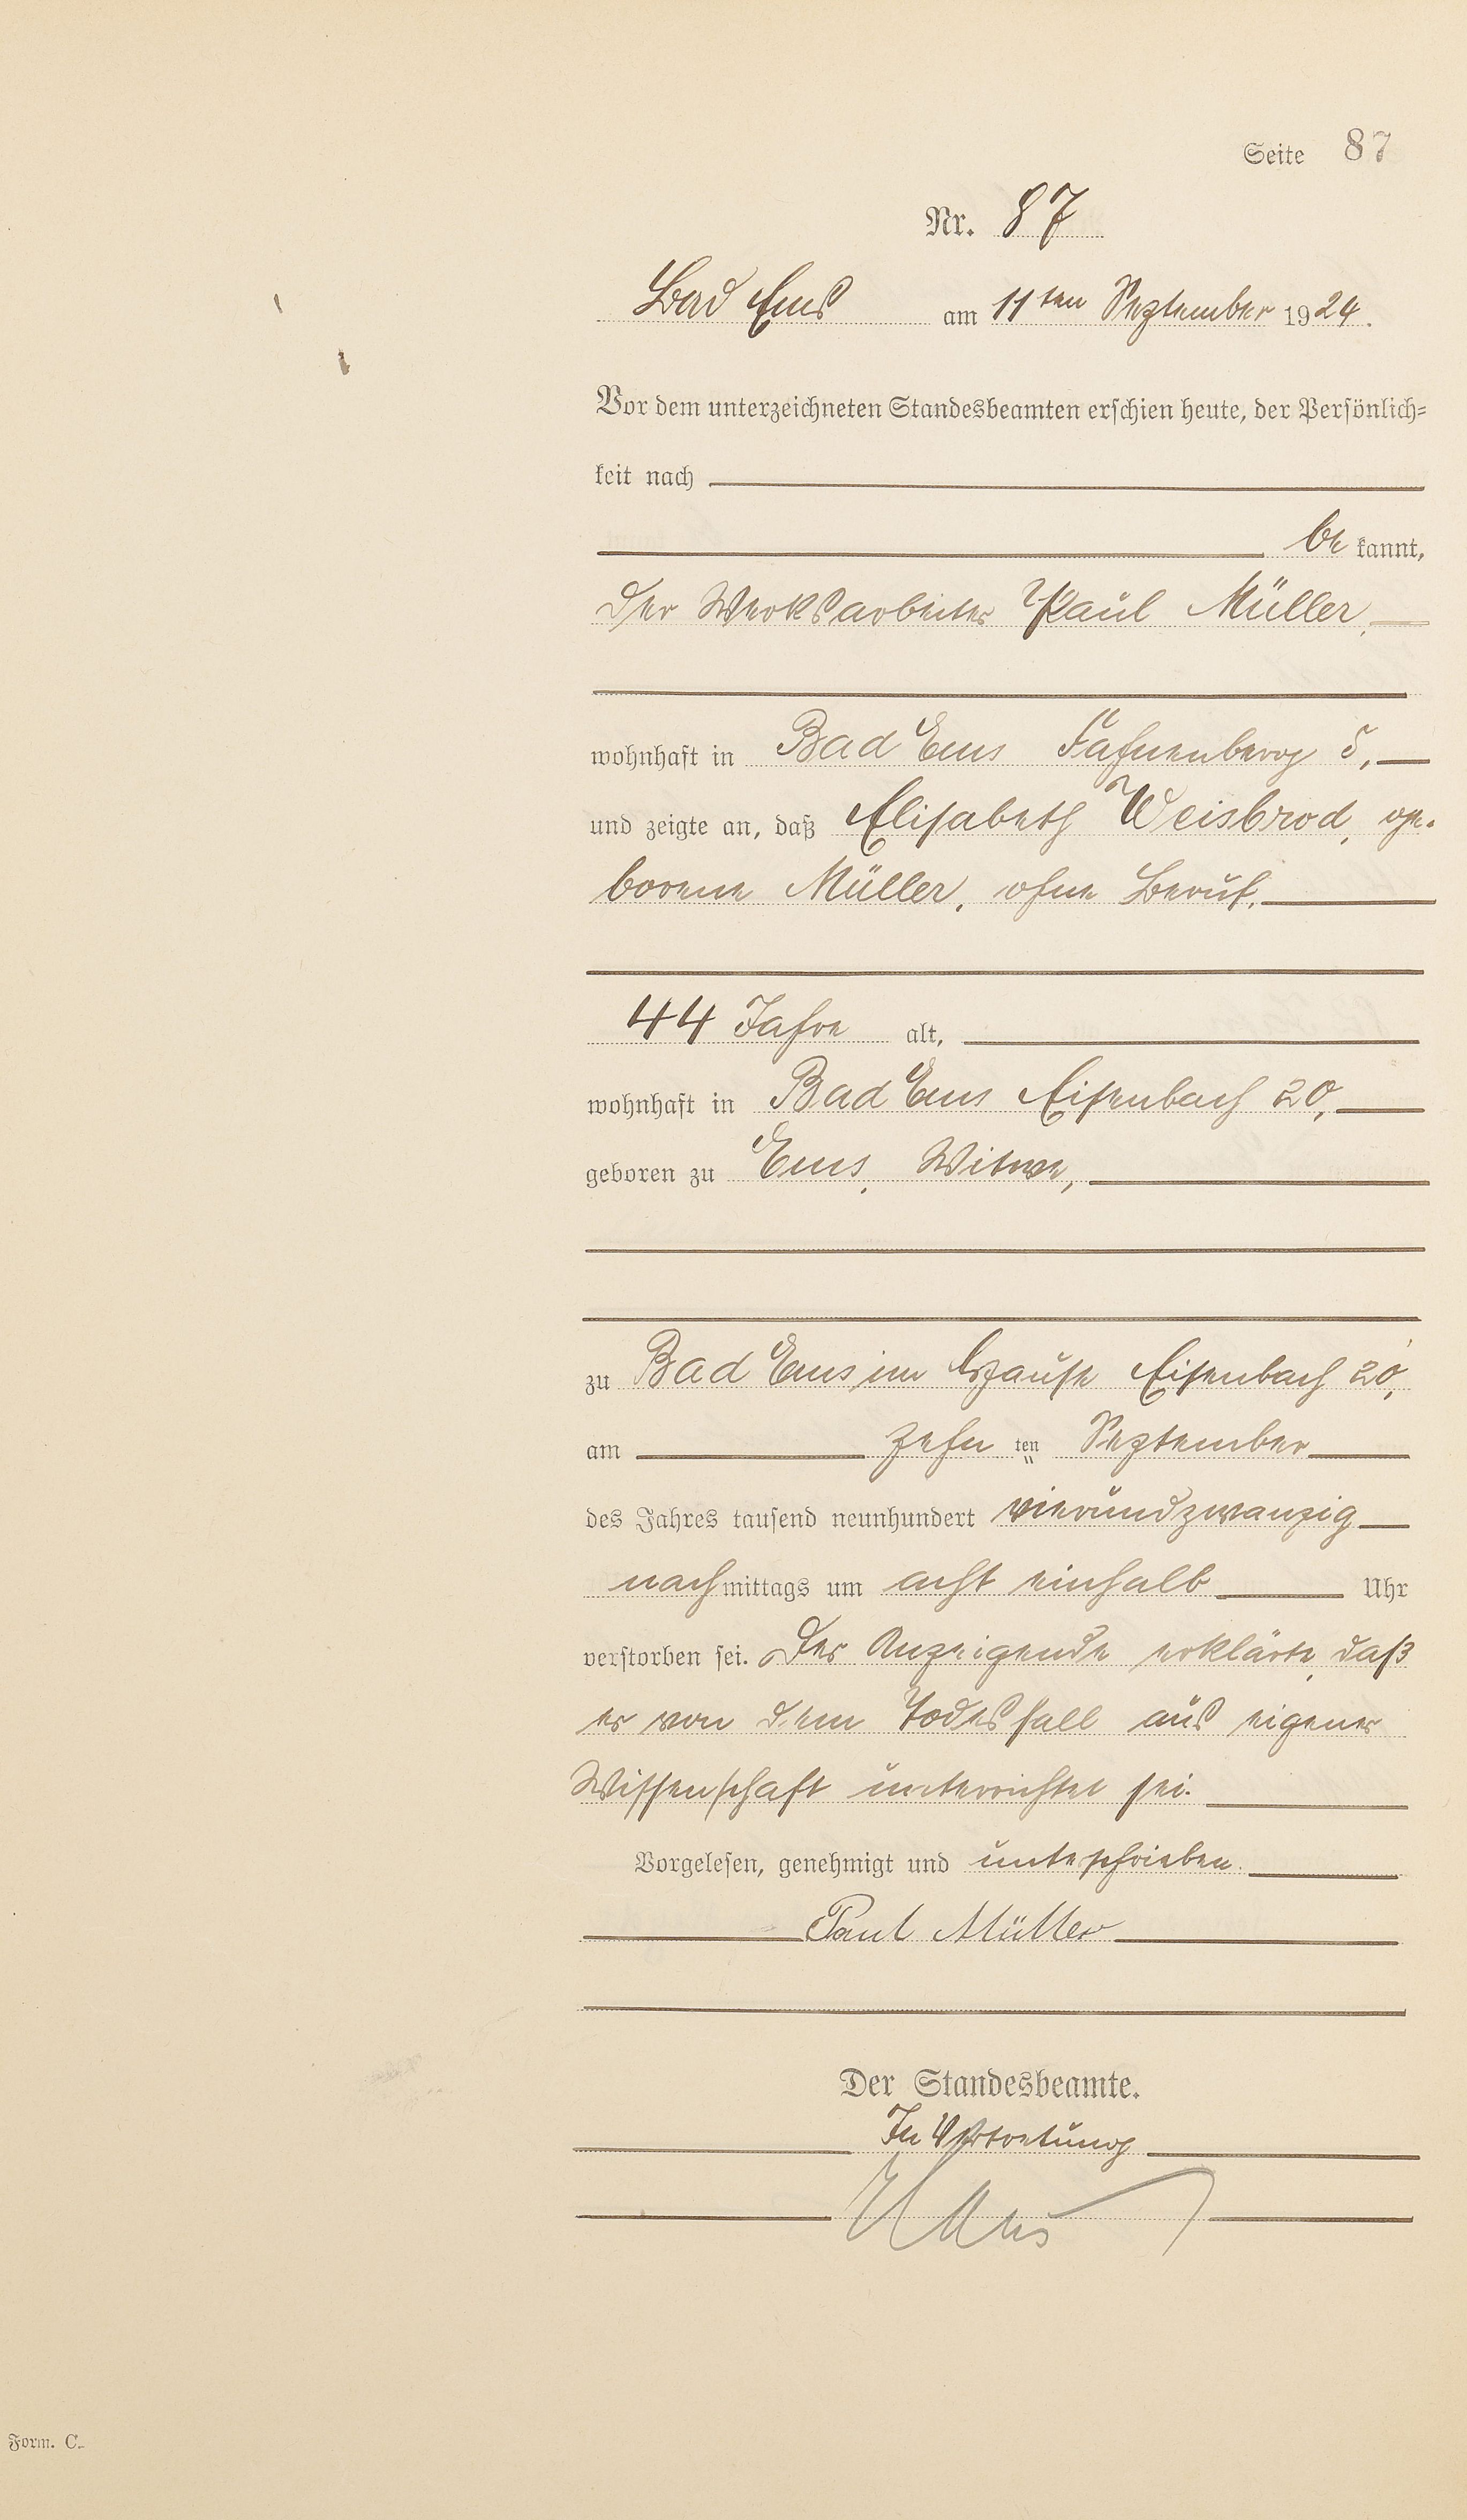 Seite 87
Nr. 87
Bad Ems am 11ten September 1924.
Vor dem unterzeichneten Standesbeamten erschien heute, der Persönlich-
keit nach
be kannt,
der Werksarbeiter Paul Müller,
wohnhaft in Bad Ems 5,
und zeigte an, daß Elisabeth Weisbrod, ge-
borene Müller, ohne Beruf,
44 Jahre alt,
wohnhaft in Bad Ems Eisenbach 20,
geboren zu Ems, Witwe,
zu Bad Ems im Hause Eisenbach 20,
am zehn ten September
des Jahres tausend neunhundert vierundzwanzig
nachmittags um acht einhalb Uhr
verstorben sei. Der Anzeigende erklärte, daß
er von dem Todesfall aus eigener
Wissenschaft unterrichtet sei.
Vorgelesen, genehmigt und unterschrieben.
Paul Müller
Der Standesbeamte.
In Vertretung
Form. C.